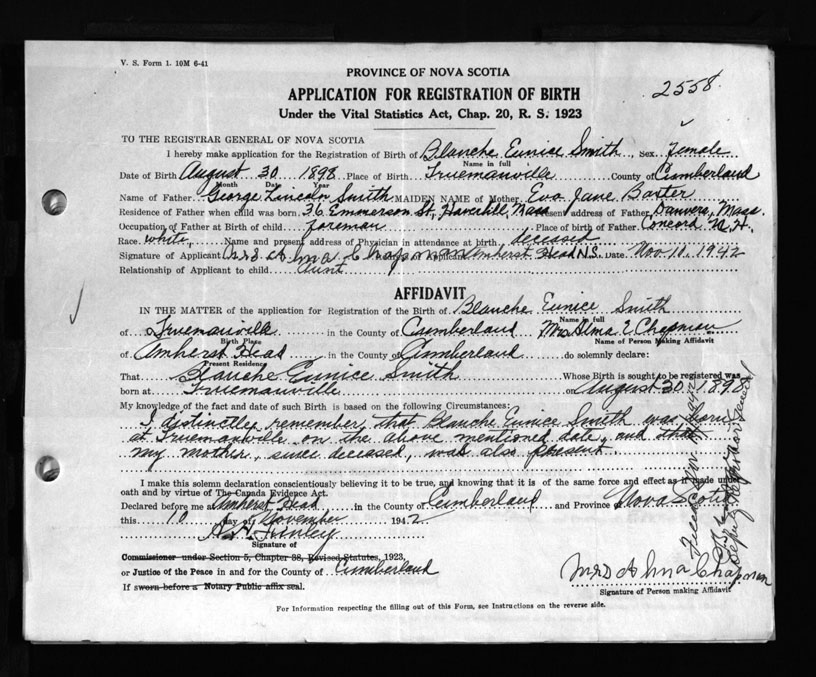 V. S. Form 1. 10M 6-41
PROVINCE OF NOVA SCOTIA
2558
APPLICATION FOR REGISTRATION OF BIRTH
Under the Vital Statistics Act, Chap. 20, R. S. 1923
TO THE REGISTRAR GENERAL OF NOVA SCOTIA
I hereby make application for the Registration of Birth of Blanche Eunice Smith, Sex Female
Name in full
Date of Birth August 30 1898 Place of Birth Truemanville County of Cumberland
Month Date Year
Name of Father George Lincoln Smith MAIDEN NAME of Mother Eva Jane Baxter
Residence of Father when child was born 36 Emmerson St, Haverhill, Mass Present address of Father Danvers, Mass.
Occupation of Father at Birth of child foreman Place of birth of Father Concord N.H.
Race white, Name and present address of Physician in attendance at birth deceased
Signature of Applicant Mrs Alma Chapman Amherst Head N.S. Date Nov 10, 1942
Relationship of Applicant to child Aunt
AFFIDAVIT
IN THE MATTER of the application for Registration of the Birth of Blanche Eunice Smith
Name in full
of Truemanville in the County of Cumberland Mrs Alma E Chapman
Birth Place Name of Person Making Affidavit
of Amherst Head in the County of Cumberland do solemnly declare:
Present Residence
That Blanche Eunice Smith Whose Birth is sought to be registered was
born at Truemanville on August 30 1898
My knowledge of the fact and date of such Birth is based on the following Circumstances:
I distinctley remember that Blanche Eunice Smith was born
at Truemanville on the above mentioned date, and that
my mother, since deceased, was also present.
I make this solemn declaration conscientiously believing it to be true, and knowing that it is of the same force and effect as if made under
oath and by virtue of The Canada Evidence Act.
Declared before me at Amherst Head in the County of Cumberland and Province of Nova Scotia
this 10 day of November 1942
A. H. Finley
Signature of
Commissioner under Section 5, Chapter 38, Revised Statutes, 1923,
or Justice of the Peace in and for the County of Cumberland
If sworn before a Notary Public affix seal.
Mrs Alma Chapman
Signature of Person making Affidavit
For Information respecting the filling out of this Form, see Instructions on the reverse side.
Deputy Registrar General